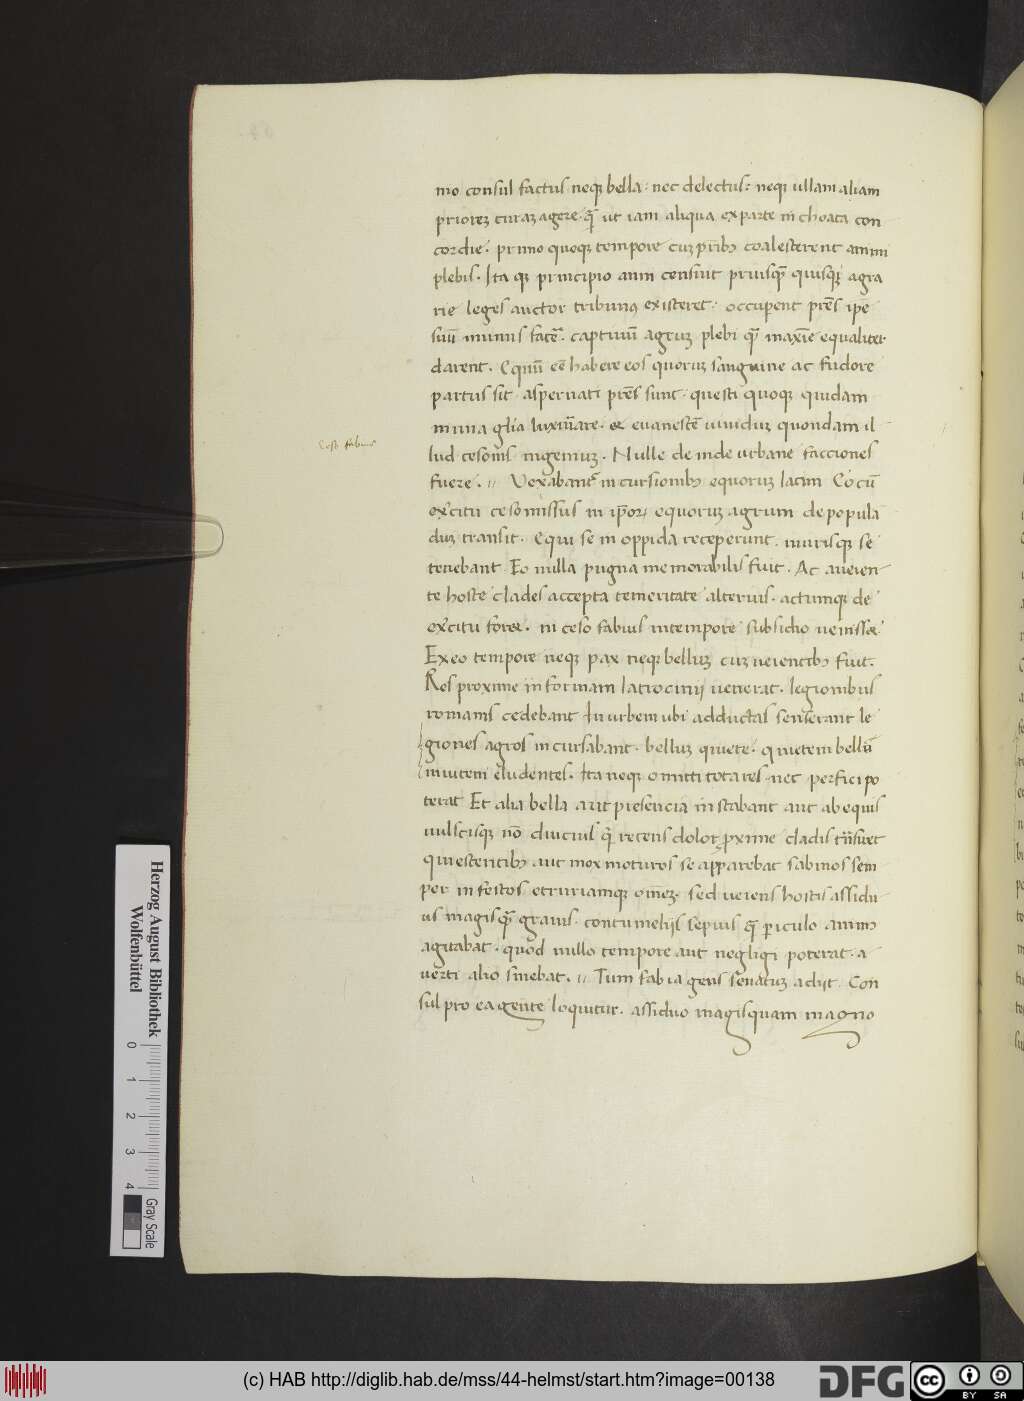 mo consul factus neqꝫ bella: nec delectus: neqꝫ ullam aliam
priorez curaz agere. q̃ȝ ut iam aliqua ex parte in choata con
cordie. primo quoqꝫ tempore cuz pr̃ibꝫ coalescerent animi
plebis. Ita qꝫ principio anni censuit priusq̃ȝ quisqꝫ agra
rie leges auctor tribunꝰ existeret. occuperent pr̃es ip̃e
suũ munus facẽ. captiuũ agruz plebi q̃ȝ maxĩe equaliter
darent. Equũ eẽ habere eos quoruz sanguine ac sudore
partus sit. aspernati pr̃es sunt. questi quoqꝫ quidam
nima gl̃ia luxũare. & euanescẽ uiuiduz quondam il
Ceso fabius
lud cesonis ingeniuz. Nulle de inde urbane facciones
fuere. // Vexabant᷑ in cursionibꝫ equoruz latini Eo cũ
exc̃itu ceso missus in ip̃oꝝ equoruz agrum de popula
duz transit. Equi se in oppida receperunt. murisqꝫ se
tenebant. Eo nulla pugna memorabilis fuit. Ac a ueien
te hoste clades accepta temeritate alterius. actumqꝫ de
exc̃itu foret. ni ceso fabius in tempore subsidio uenisset
Ex eo tempore neqꝫ pax neqꝫ belluz cuz ueientibꝫ fuit.
Res proxime in formam latrocinij uenerat. legionibus
romanis cedebant In urbem ubi adductas senserant le
giones agros in cursabant. belluz quiete. quietem bellũ
inuicem eludentes. Ita neqꝫ omitti tota res nec perfici po
terat Et alia bella aut presencia in stabant aut ab equis
uulscisqꝫ nõ diucius q̃ȝ recens dolor proxime cladis trãsiret
quiescentibꝫ aut mox moturos se apparebat sabinos sem
per in festos etruriamqꝫ om̃ez. sed ueiens hostis assidu
us magisq̃ȝ grauis. contumelijs sepius q̃ȝ periculo animos
agitabat. quod nullo tempore aut negligi poterat. a
uerti alio sinebat. // Tum fabia gens senatuz adijt. Con
sul pro ea gente loquitur. assiduo magisquam magno
Herzog August Bibliothek
Wolfenbüttel
0 1 2 3 4
Gray Scale
(c) HAB http://diglib.hab.de/mss/44-helmst/start.htm?image=00138
DFG
cc BY SA